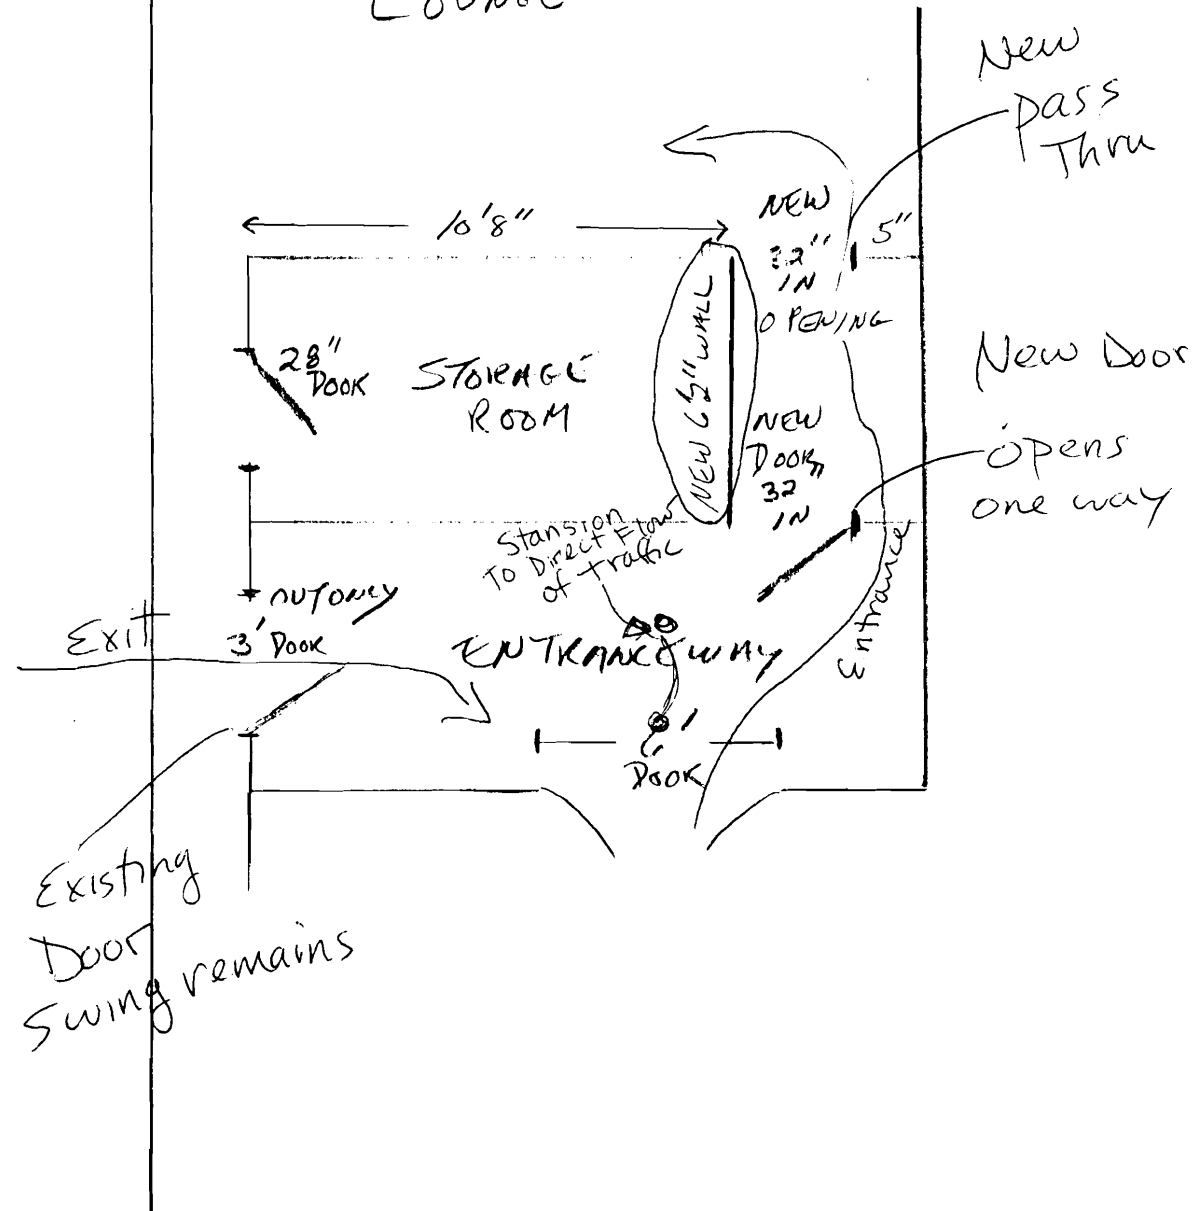 LOUNGE
New
pass
Thru
10'8"
NEW
32"
IN
OPENING
5"
28"
DOOR
STORAGE
ROOM
NEW 6½" WALL
NEW
DOOR
32"
IN
New Door
opens
one way
Stansion
To Direct Flow
of traffic
OUT ONLY
3' DOOR
Exit
ENTRANCE WAY
Entrance
6'
DOOR
Existing
Door
Swing remains